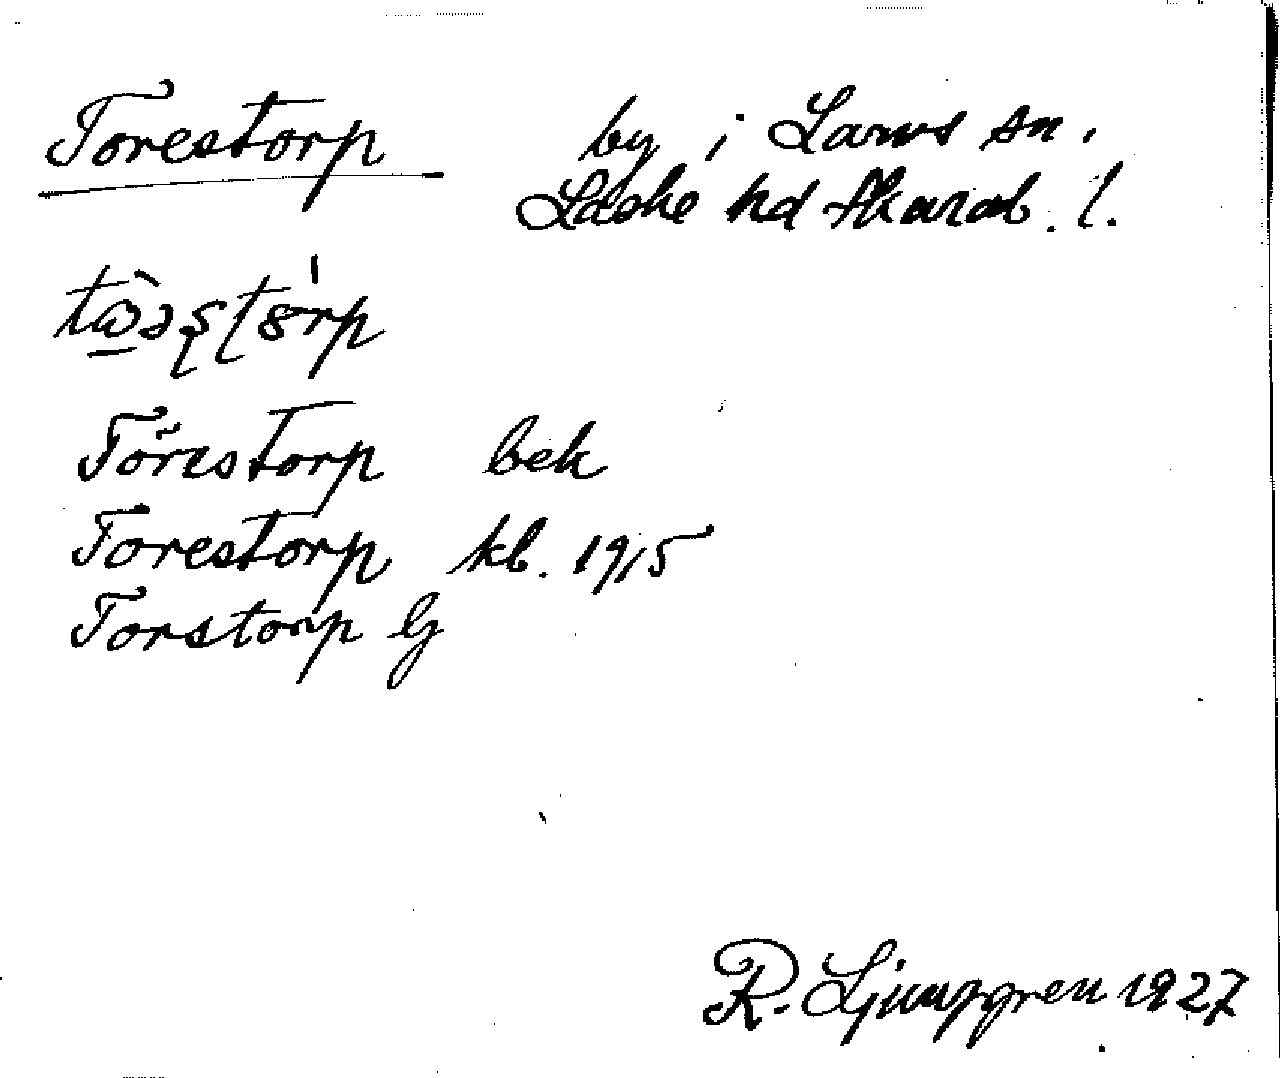 Torestorp by i Larvs sn.
Laske hd Skarab. l.
Törestorp bek
Torestorp kb. 1915
Torstorp G
R. Ljunggren 1927